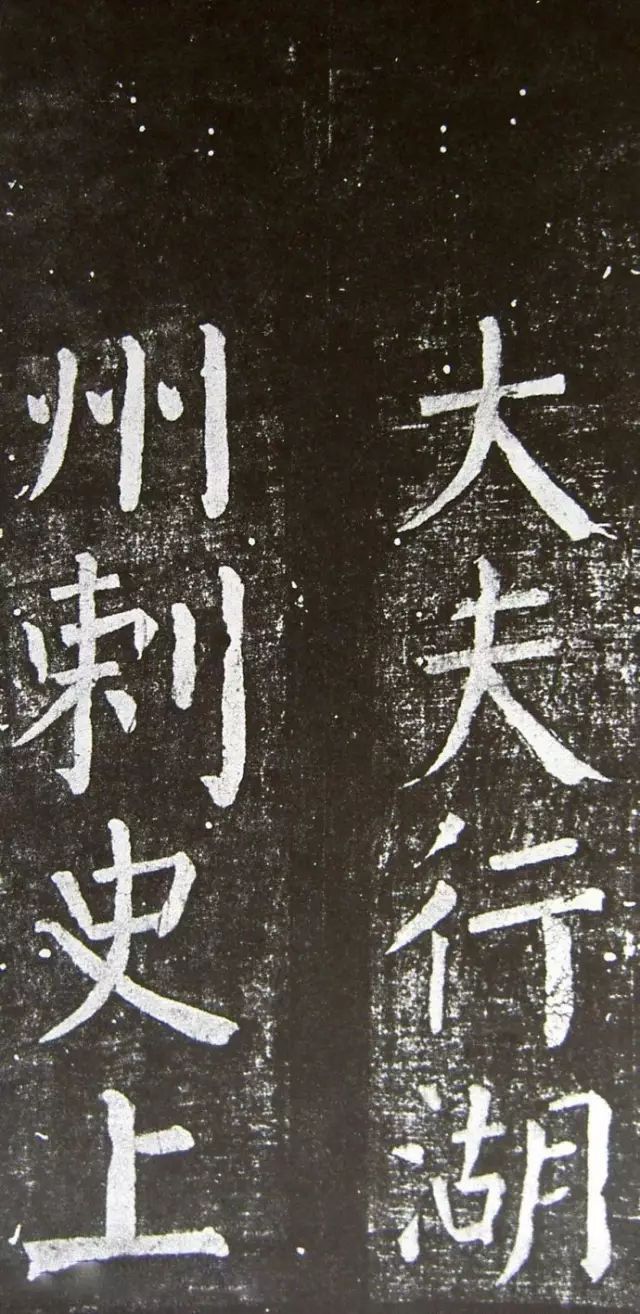 大夫行湖
州刺史上